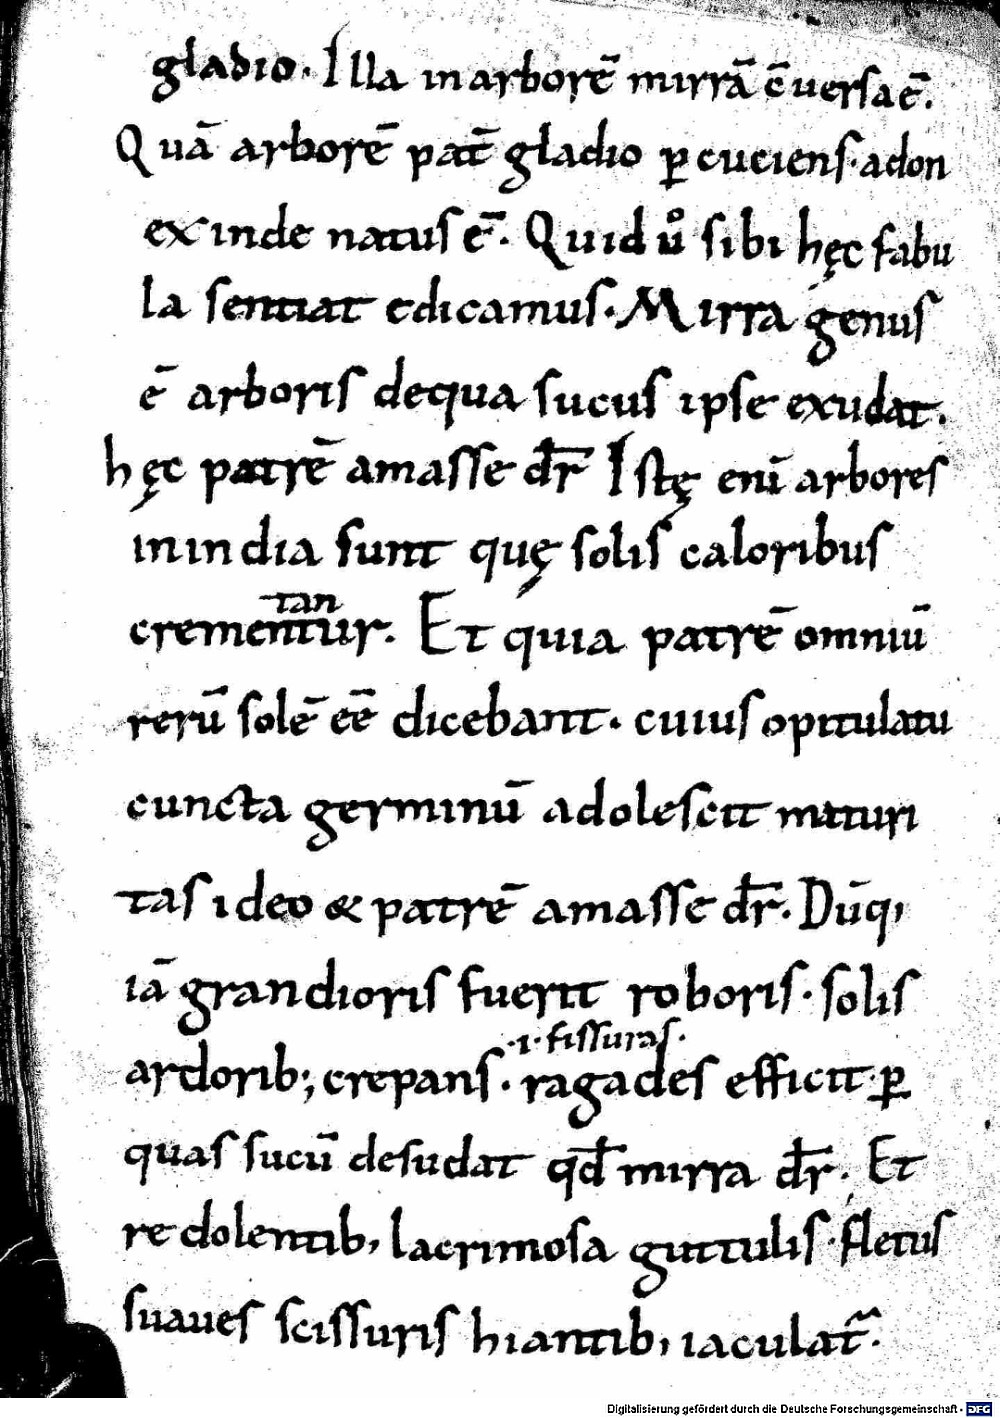 gladio. Illa in arborē mirrā c̄uersa ē.
Quā arborē pat̄ gladio ꝑcuciens. adon
exinde natus ē. Quid ůͦ sibi hęc fabu
la sentiat edicamus. Mirra genus
ē arboris dequa sucus ipse exudat.
hęc patrē amasse dr̄ Istę eni̅ arbores
in india sunt quę solis caloribus
crementur. Et quia patrē omniū
tan
rerū solē eē dicebant. cuius opitulatu
cuncta germinū adolescit maturi
tas ideo & patrē amasse dr̄. Dūq,
iā grandioris fuerit roboris. solis
.i. fissuras.
ardorib; crepans. ragades efficit ꝑ
quas sucū desudat qđ mirra dr̄. Et
redolentib, lacrimosa guttulis. fletus
suaues scissuris hiantib, iaculat̄.
Digitalisierung gefördert durch die Deutsche Forschungsgemeinschaft - DFG